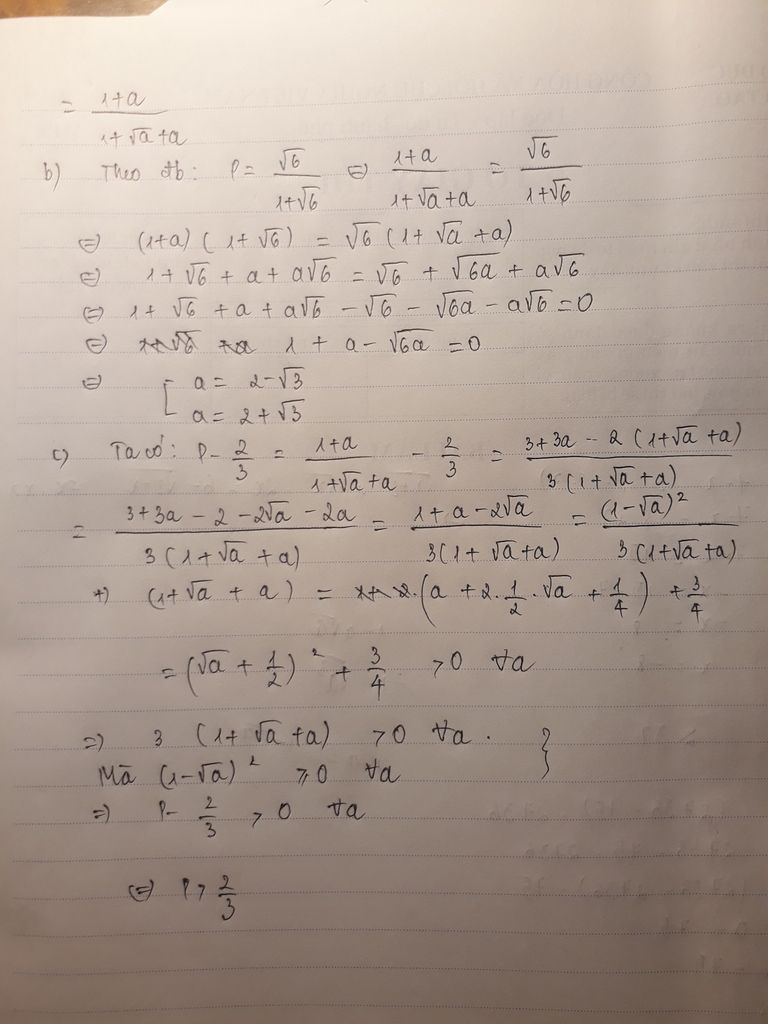 = (1+a)/(1+√a+a)
b) Theo đb: P = √6/(1+√6) ⇔ (1+a)/(1+√a+a) = √6/(1+√6)
⇔ (1+a)(1+√6) = √6(1+√a+a)
⇔ 1+√6+a+a√6 = √6+√(6a)+a√6
⇔ 1+√6+a+a√6-√6-√(6a)-a√6=0
⇔ 1+a-√(6a)=0
⇔ [ a = 2-√3
a = 2+√3
c) Ta có: P-2/3 = (1+a)/(1+√a+a) - 2/3 = (3+3a-2(1+√a+a))/(3(1+√a+a))
= (3+3a-2-2√a-2a)/(3(1+√a+a)) = (1+a-2√a)/(3(1+√a+a)) = (1-√a)²/(3(1+√a+a))
+) (1+√a+a) = (a+2.1/2.√a+1/4)+3/4
= (√a+1/2)²+3/4 >0 ∀a
=) 3(1+√a+a) >0 ∀a. }
Mà (1-√a)² ⩾0 ∀a
=) P-2/3 >0 ∀a
⇔ P>2/3